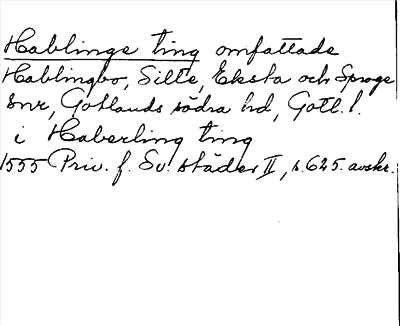 Hablinge ting omfattade
Hablingbo, Silte, Eksta och Sproge
snr, Gotlands södra hd, Gotl. l.
i Haberling ting
1555 Priv. f. Sv. städer II, s. 625. avskr.